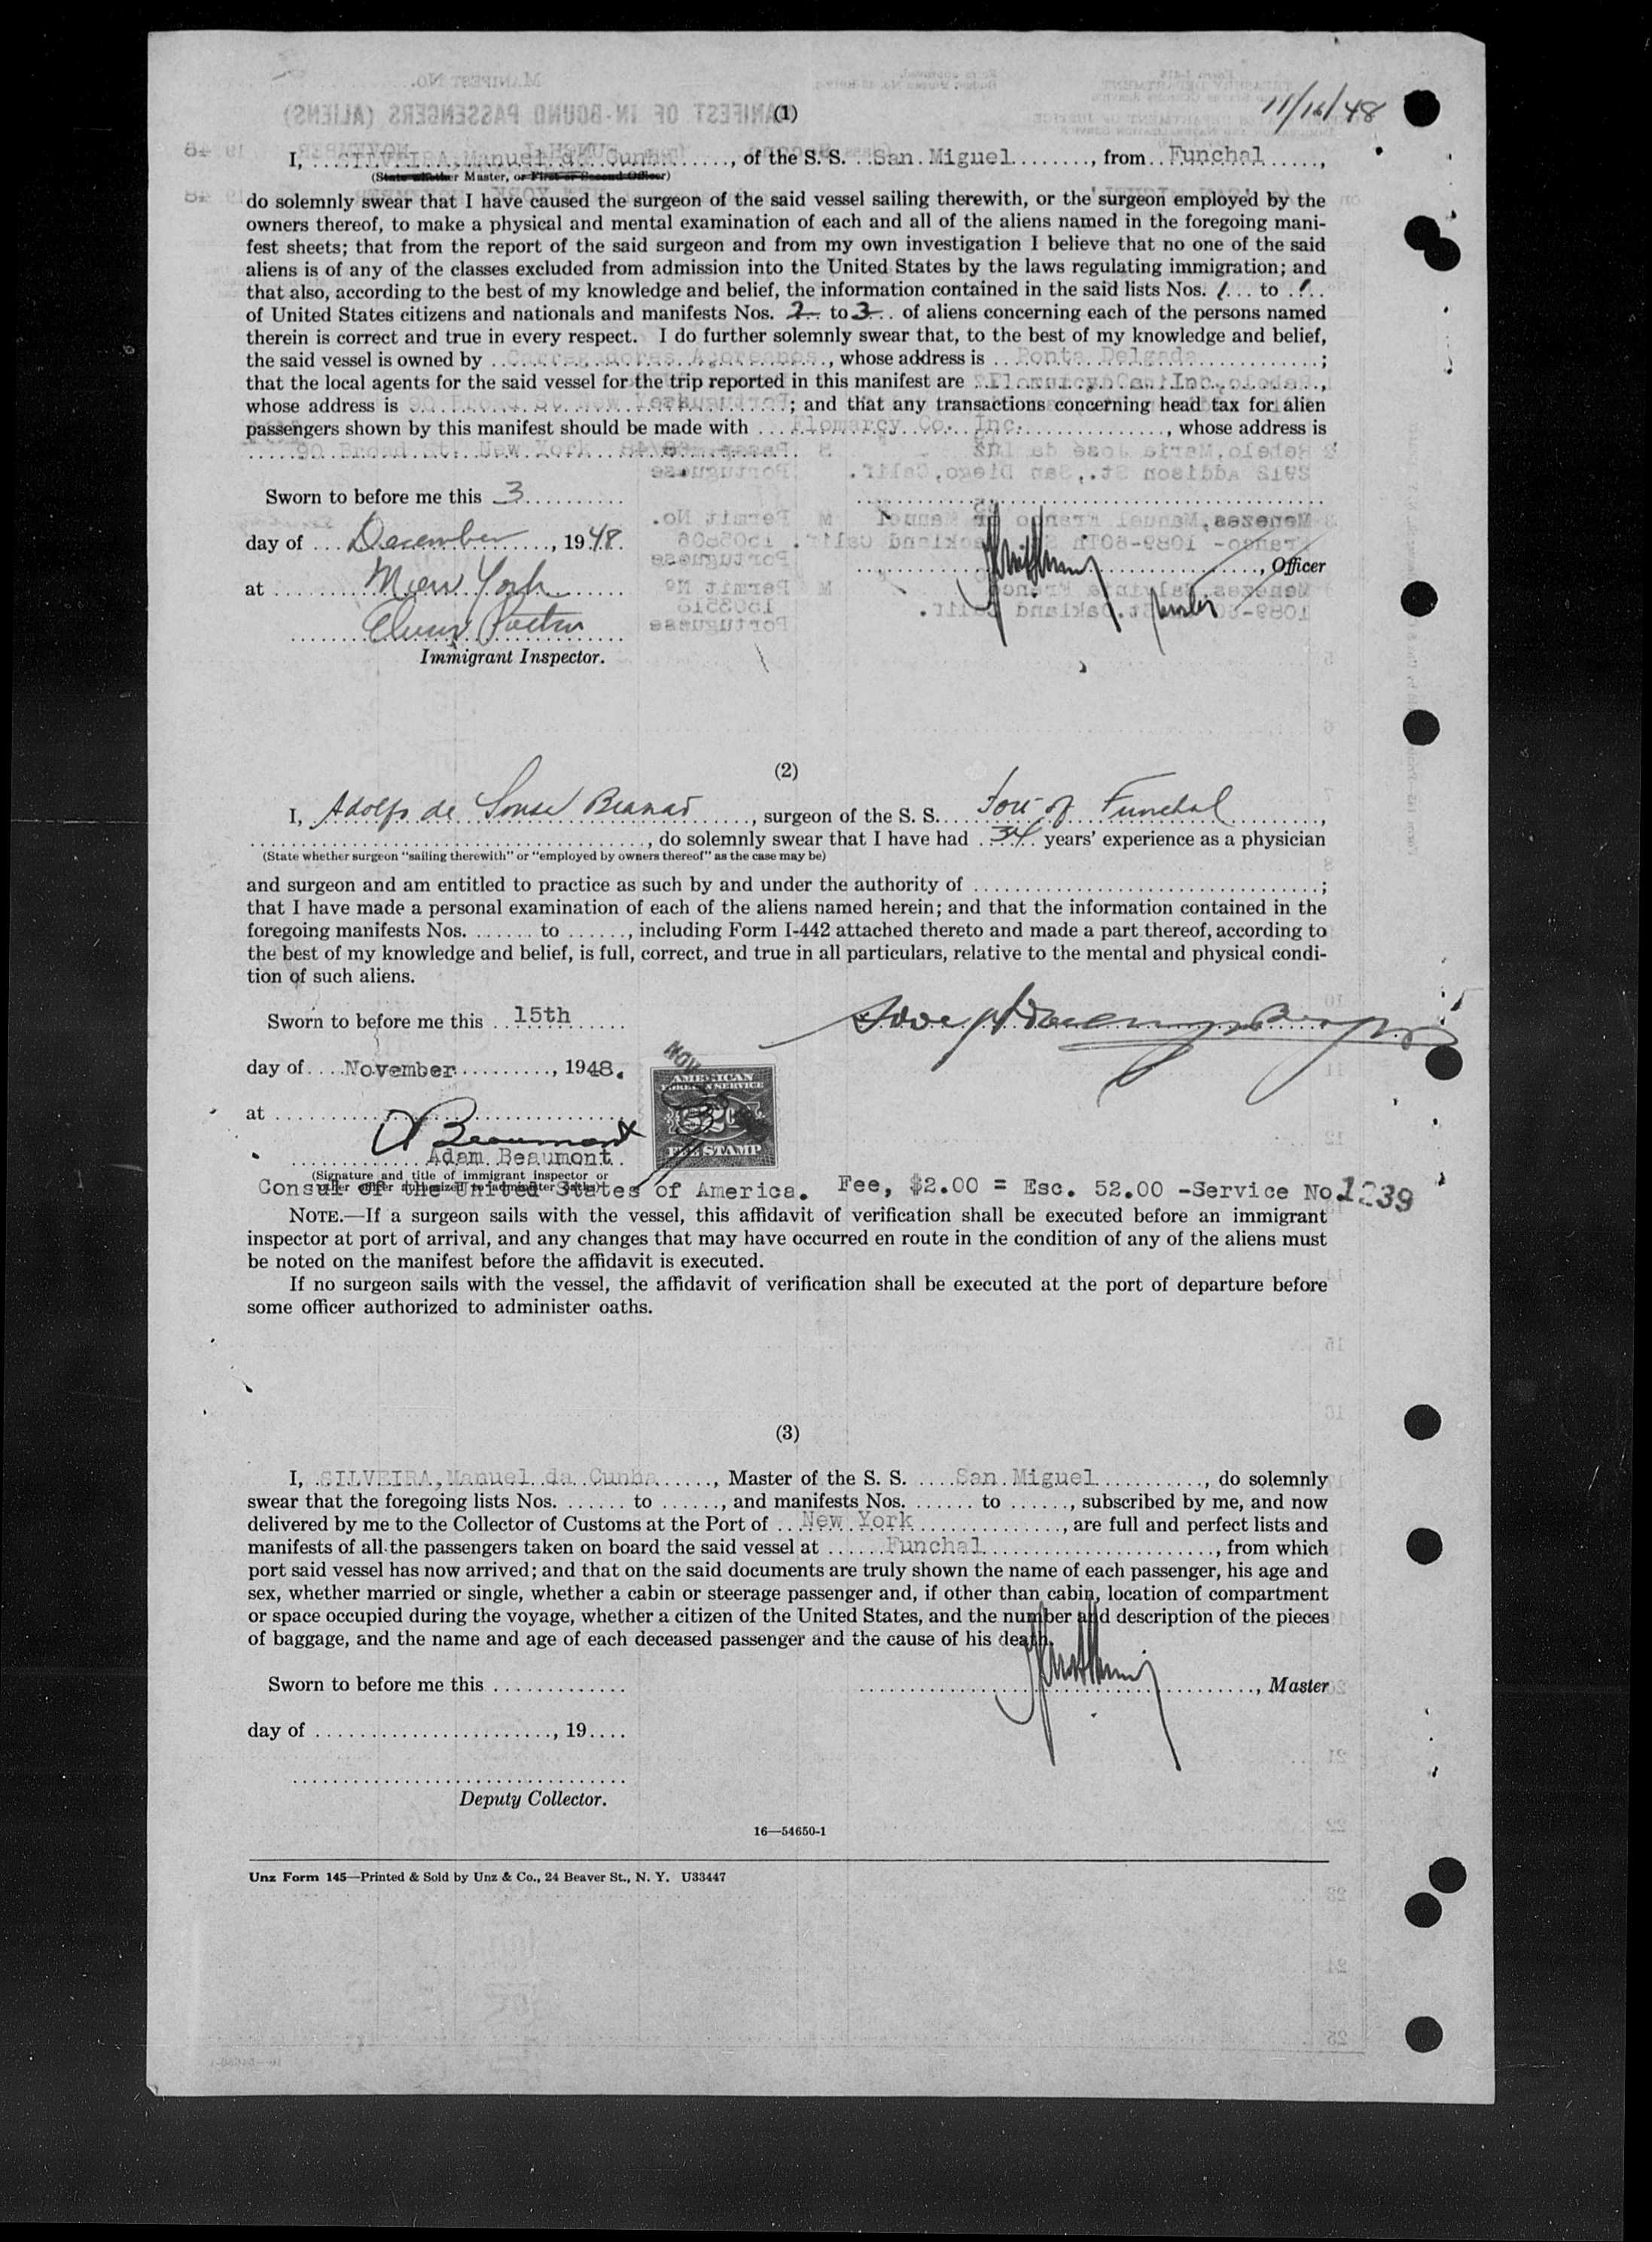 (1)
11/16/48
I, SILVEIRA, Manuel da Cunha, of the S. S. San Miguel, from Funchal,
(State whether Master, or First or Second Officer)
do solemnly swear that I have caused the surgeon of the said vessel sailing therewith, or the surgeon employed by the
owners thereof, to make a physical and mental examination of each and all of the aliens named in the foregoing mani-
fest sheets; that from the report of the said surgeon and from my own investigation I believe that no one of the said
aliens is of any of the classes excluded from admission into the United States by the laws regulating immigration; and
that also, according to the best of my knowledge and belief, the information contained in the said lists Nos. 1 to 1
of United States citizens and nationals and manifests Nos. 2 to 3 of aliens concerning each of the persons named
therein is correct and true in every respect. I do further solemnly swear that, to the best of my knowledge and belief,
the said vessel is owned by Carregadores Açoreanos, whose address is Ponta Delgada;
that the local agents for the said vessel for the trip reported in this manifest are Flomarcy Co. Inc.,
whose address is 90 Broad St. New York; and that any transactions concerning head tax for alien
passengers shown by this manifest should be made with Flomarcy Co. Inc., whose address is
90 Broad St. New York
Sworn to before me this 3
day of December, 1948.
, Officer
at New York
Immigrant Inspector.
(2)
I, Adolfo de Sousa, surgeon of the S. S. Port of Funchal,
, do solemnly swear that I have had 34 years' experience as a physician
(State whether surgeon "sailing therewith" or "employed by owners thereof" as the case may be)
and surgeon and am entitled to practice as such by and under the authority of ;
that I have made a personal examination of each of the aliens named herein; and that the information contained in the
foregoing manifests Nos. to , including Form I-442 attached thereto and made a part thereof, according to
the best of my knowledge and belief, is full, correct, and true in all particulars, relative to the mental and physical condi-
tion of such aliens.
Sworn to before me this 15th
day of November, 1948.
NOV
AMERICAN
FOREIGN SERVICE
$2
FEE STAMP
at
A Beaumont
Adam Beaumont
(Signature and title of immigrant inspector or
other officer authorized to administer oaths)
Consul of the United States of America. Fee, $2.00 = Esc. 52.00 -Service No. 1239
NOTE.—If a surgeon sails with the vessel, this affidavit of verification shall be executed before an immigrant
inspector at port of arrival, and any changes that may have occurred en route in the condition of any of the aliens must
be noted on the manifest before the affidavit is executed.
If no surgeon sails with the vessel, the affidavit of verification shall be executed at the port of departure before
some officer authorized to administer oaths.
(3)
I, SILVEIRA, Manuel da Cunha, Master of the S. S. San Miguel, do solemnly
swear that the foregoing lists Nos. to , and manifests Nos. to , subscribed by me, and now
delivered by me to the Collector of Customs at the Port of New York, are full and perfect lists and
manifests of all the passengers taken on board the said vessel at Funchal, from which
port said vessel has now arrived; and that on the said documents are truly shown the name of each passenger, his age and
sex, whether married or single, whether a cabin or steerage passenger and, if other than cabin, location of compartment
or space occupied during the voyage, whether a citizen of the United States, and the number and description of the pieces
of baggage, and the name and age of each deceased passenger and the cause of his death.
Sworn to before me this
, Master
day of , 19
Deputy Collector.
16—54650-1
Unz Form 145—Printed & Sold by Unz & Co., 24 Beaver St., N. Y. U33447